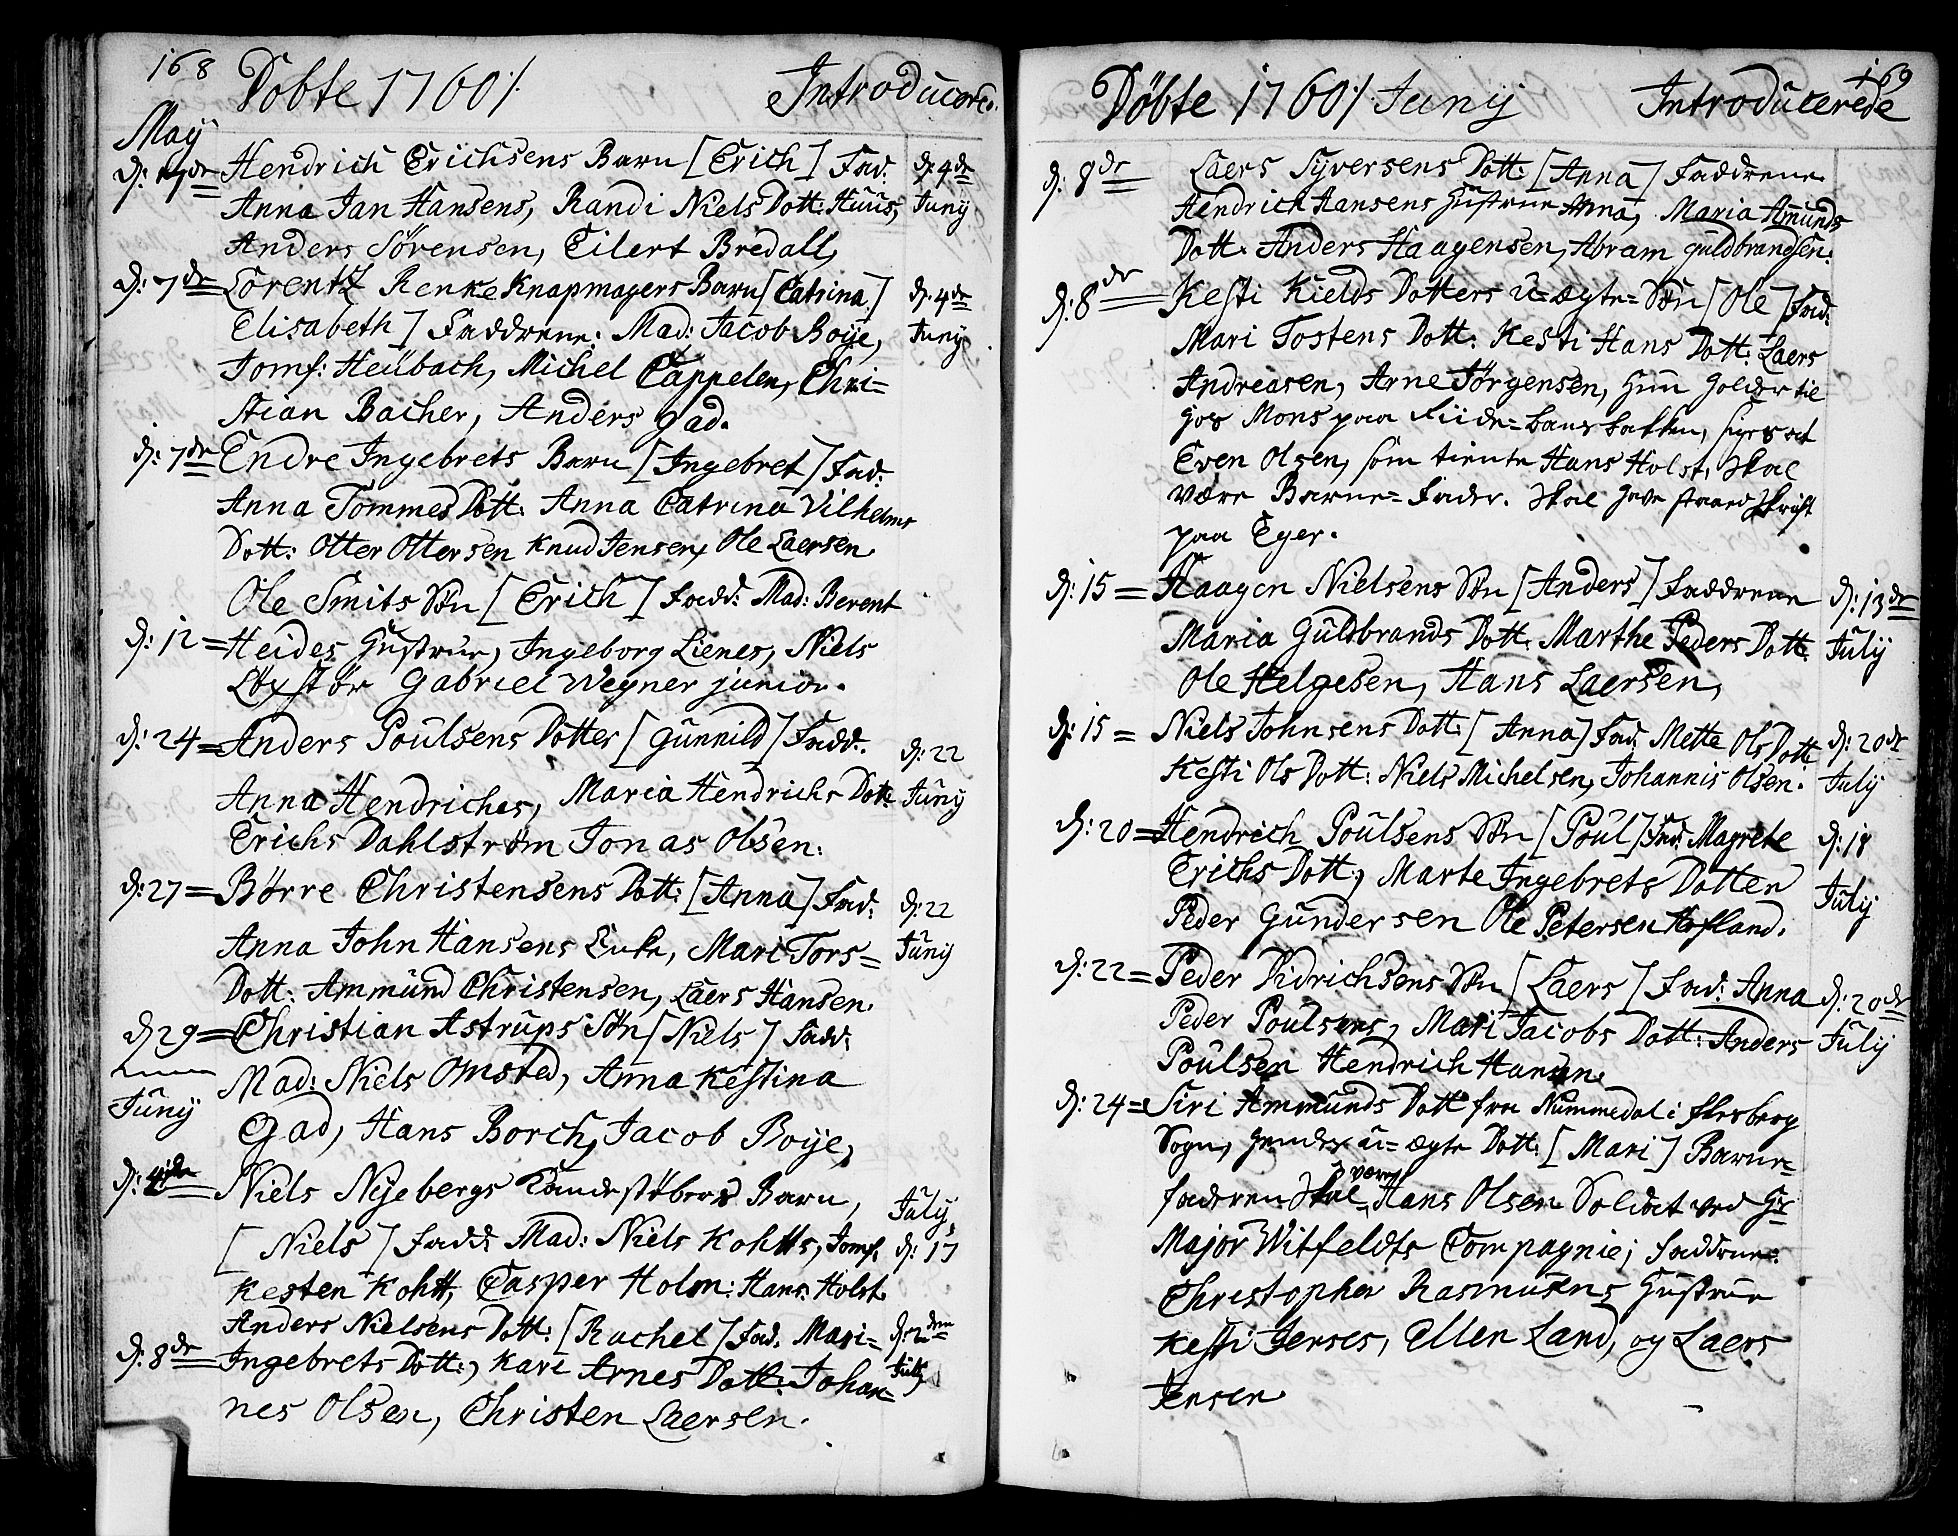 168
Döbte 1760 ·/. Introducered.
May
d: 7de Hendrich Erichsens Barn [Erich] Fad: d: 4de
Anna Jan Hansens, Randi Niels Dott: Huus, Juny
Anders Sørensen, Eilert Bredall,
d: 7de Lorentz Renke Knapmagers Barn [Catrina d: 4de
Elisabeth] Faddrene: Mad: Jacob Boÿe, Juny
Jomf: Heübach, Michel Cappelen, Chri-
stian Bacher, Anders Gad.
d: 7de Endre Ingebrets Barn [Ingebret] Fad:
Anna Tommes Dott: Anna Catrina Vilhelms
Dott: Otter Ottersen Knud Jensen, Ole Laersen.
Ole Smits Søn [Erich] Fadd: Mad: Berent
d: 12= Heides Hustrue, Ingeborg Lienes, Niels
Løxstør Gabriel Wegner junior.
d: 24= Anders Poulsens Dotter [Gunnild] Fadd: d: 22
Anna Hendriches, Maria Hendrichs Dott: Juny
Erichs Dahlstrøm Jonas Olsen.
d: 27= Børre Christensens Dott: [Anna] Fad: d: 22
Anna John Hansens Enke, Mari Tors= Juny
Dott: Ammund Christensen, Laers Hansen.
d 29= Christian Astrups Søn [Niels] Fadd:
Mad: Niels Omsted, Anna Kestina
Juny
Gad, Hans Borch, Jacob Boÿe,
d: 4de Niels Nyebergs Kandestøbers Barn, July
[Niels] Fadd: Mad: Niels Kohtts, Jomf. d: 17
Kesten Kohtt, Casper Holm: Hans Holst
Anders Nielsens Dott: [Rachel] Fad. Mari= d: 2den
d: 8de Ingebrets Dott:, Kari Arnes Dott: Johan= July
nes Olsen, Christen Laersen.
169
Döbte 1760 ·/. Junij Introducerede
d: 8de Laers Syversens Dott: [Anna] Faddrene
Hendrich Hansens Hustrue Anna, Maria Amunds
Dott. Anders Haagensen, Abram Guldbrandsen:
d: 8de Kesti Kields Dotters u=ægte=Søn [Ole] Fad:
Mari Tostens Dott: Kesti Hans Dott: Laers
Andreasen, Arne Jørgensen, hun holder til
hos Mons paa , siges at
Even Olsen, som tiente Hans Holst, skal
være Barne=Fader. skal have staaed skrift
paa Eger.
d: 15= Haagen Nielsens Søn [Anders] Faddrene d: 13de
Maria Guldbrands Dott: Marthe Peders Dott: July
Ole Helgesen, Hans Laersen,
d: 15= Niels Johnsens Dott: [Anna] Fad: Mette Ols Dott d: 20de
Kesti Ols Dott: Niels Michelsen, Johannis Olsen. July
d: 20= Hendrich Poulsens Søn [Poul] Fad: Magrete d: 18
Erichs Dott:, Marte Ingebrets Dotter July
Peder Gundersen Ole Petersen Hofland.
d: 22= Peder Didrichsens Søn [Laers] Fad: Anna d: 20de
Peder Poulsens, Mari Jacobs Dott: Anders July
Poulsen Hendrich Hansen.
d: 24= Siri Ammunds Dott fra Nummedal i Flesberg
Sogn, hendes u=ægte Dott: [Mari] Barne=
faderen skal være Hans Olsen Soldat ved Hr
Major Witfeldts Compagnie; Faddrene:
Christopher Rasmusens Hustrue
Kesti Jenses, Ellen Land, og Laers
Jensen